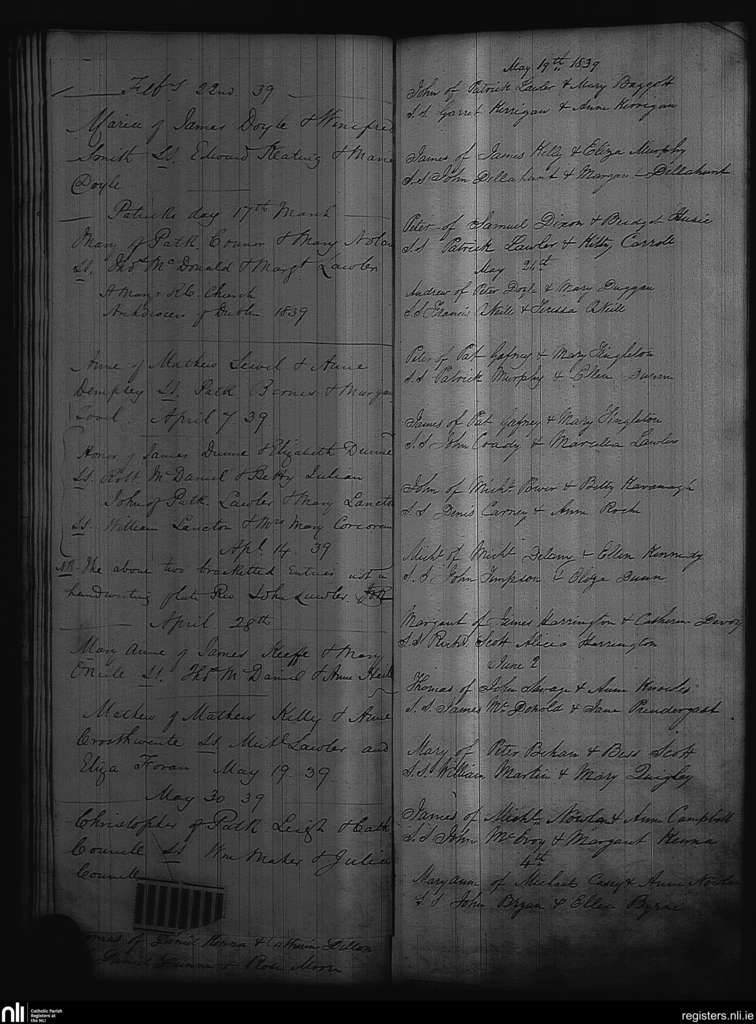 Feb 22nd 39
Maria of James Doyle & Winefred
Smith Ss. Edward Keating & Maria
Doyle
Patricks day 17th March
Mary of Patk Connor & Mary Nolan
Ss. Thos McDonald & Margt Lawler
St Marys RC. Church
Archdiocess of Dublin 1839
Anne of Mathew & Anne
Dempsey Ss. Patk Byrnes &
April 7 39
Honor of James Dunne & Elizabeth Dunne
Ss. Robt McDaniel & Betty
John of Patk Lawler & Mary Lancton
Ss. William Lancton & Mrs Mary Corcoran
Apl. 14. 39
NB - The above two bracketted Entries not in
handwriting of late Rev John Lawler.
April 28th
Mary Anne of James Keeffe & Mary
Ss. Thos McDaniel & Anne
Mathew of Mathew Kelly & Anne
Crosthwaite Ss. Michl Lawler and
Eliza Foran May 19 39
May 30 39
Christopher of Patk Leigh & Cath
Connell Ss Wm Maher & Julia
Connell
of Daniel & Catherine Dillon
Daniel Dunne & Rose Moore
May 19th 1839
John of Patrick Lawler & Mary Baggott
S.S. Garret Kerrigan & Anne Kerrigan
James of James Kelly & Eliza Murphy
S.S John Dellahunt & Margaret Dellahunt
Peter of Samuel Dixon & Bridget
S.S Patrick Lawler & Kitty Carroll
May
Andrew of Peter & Mary Duggan
S.S Francis & Teressa
Peter of Pat Gafney & Mary Singleton
S.S Patrick Murphy & Ellen Dunn
James of Pat Gafney & Mary Singleton
S.S John Coady & Marcella Lawler
John of Michl. Power & Betty Kavanagh
S.S Denis Carney & Anne Roche
Michl of Michl Deleny & Ellen Kennedy
S.S John Simpson & Eliza
Margaret of James Harrington & Catherine Davoy
S.S Richd Scott Alicia Harrington
June 2
Thomas of John Savage & Anne Knowles
S.S James McDonold & Jane Prendergast
Mary of Peter Behan & Bess Scott
S.S. William Martin & Mary Quigley
James of Michl. Nowlan & Anne Campbell
S.S John McEvoy & Margaret
4th
Maryanne of Michael Casey & Anne
S.S John Bryan & Ellen Byrne
nli
Catholic Parish
Registers at
the NLI
registers.nli.ie